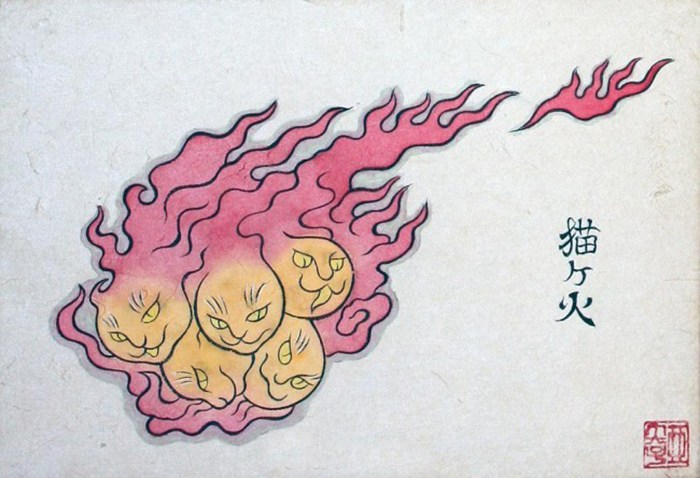 猫ヶ火